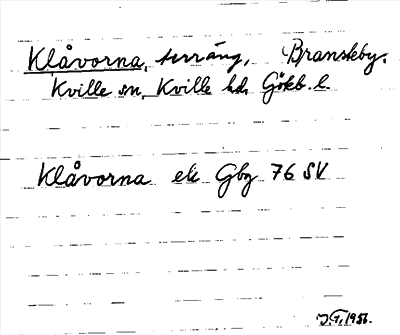 Klåvorna, terräng, Bransteby.
Kville sn, Kville hd. Götb. l.
Klåvorna ek Gbg 76 SV
J.T. 1956.